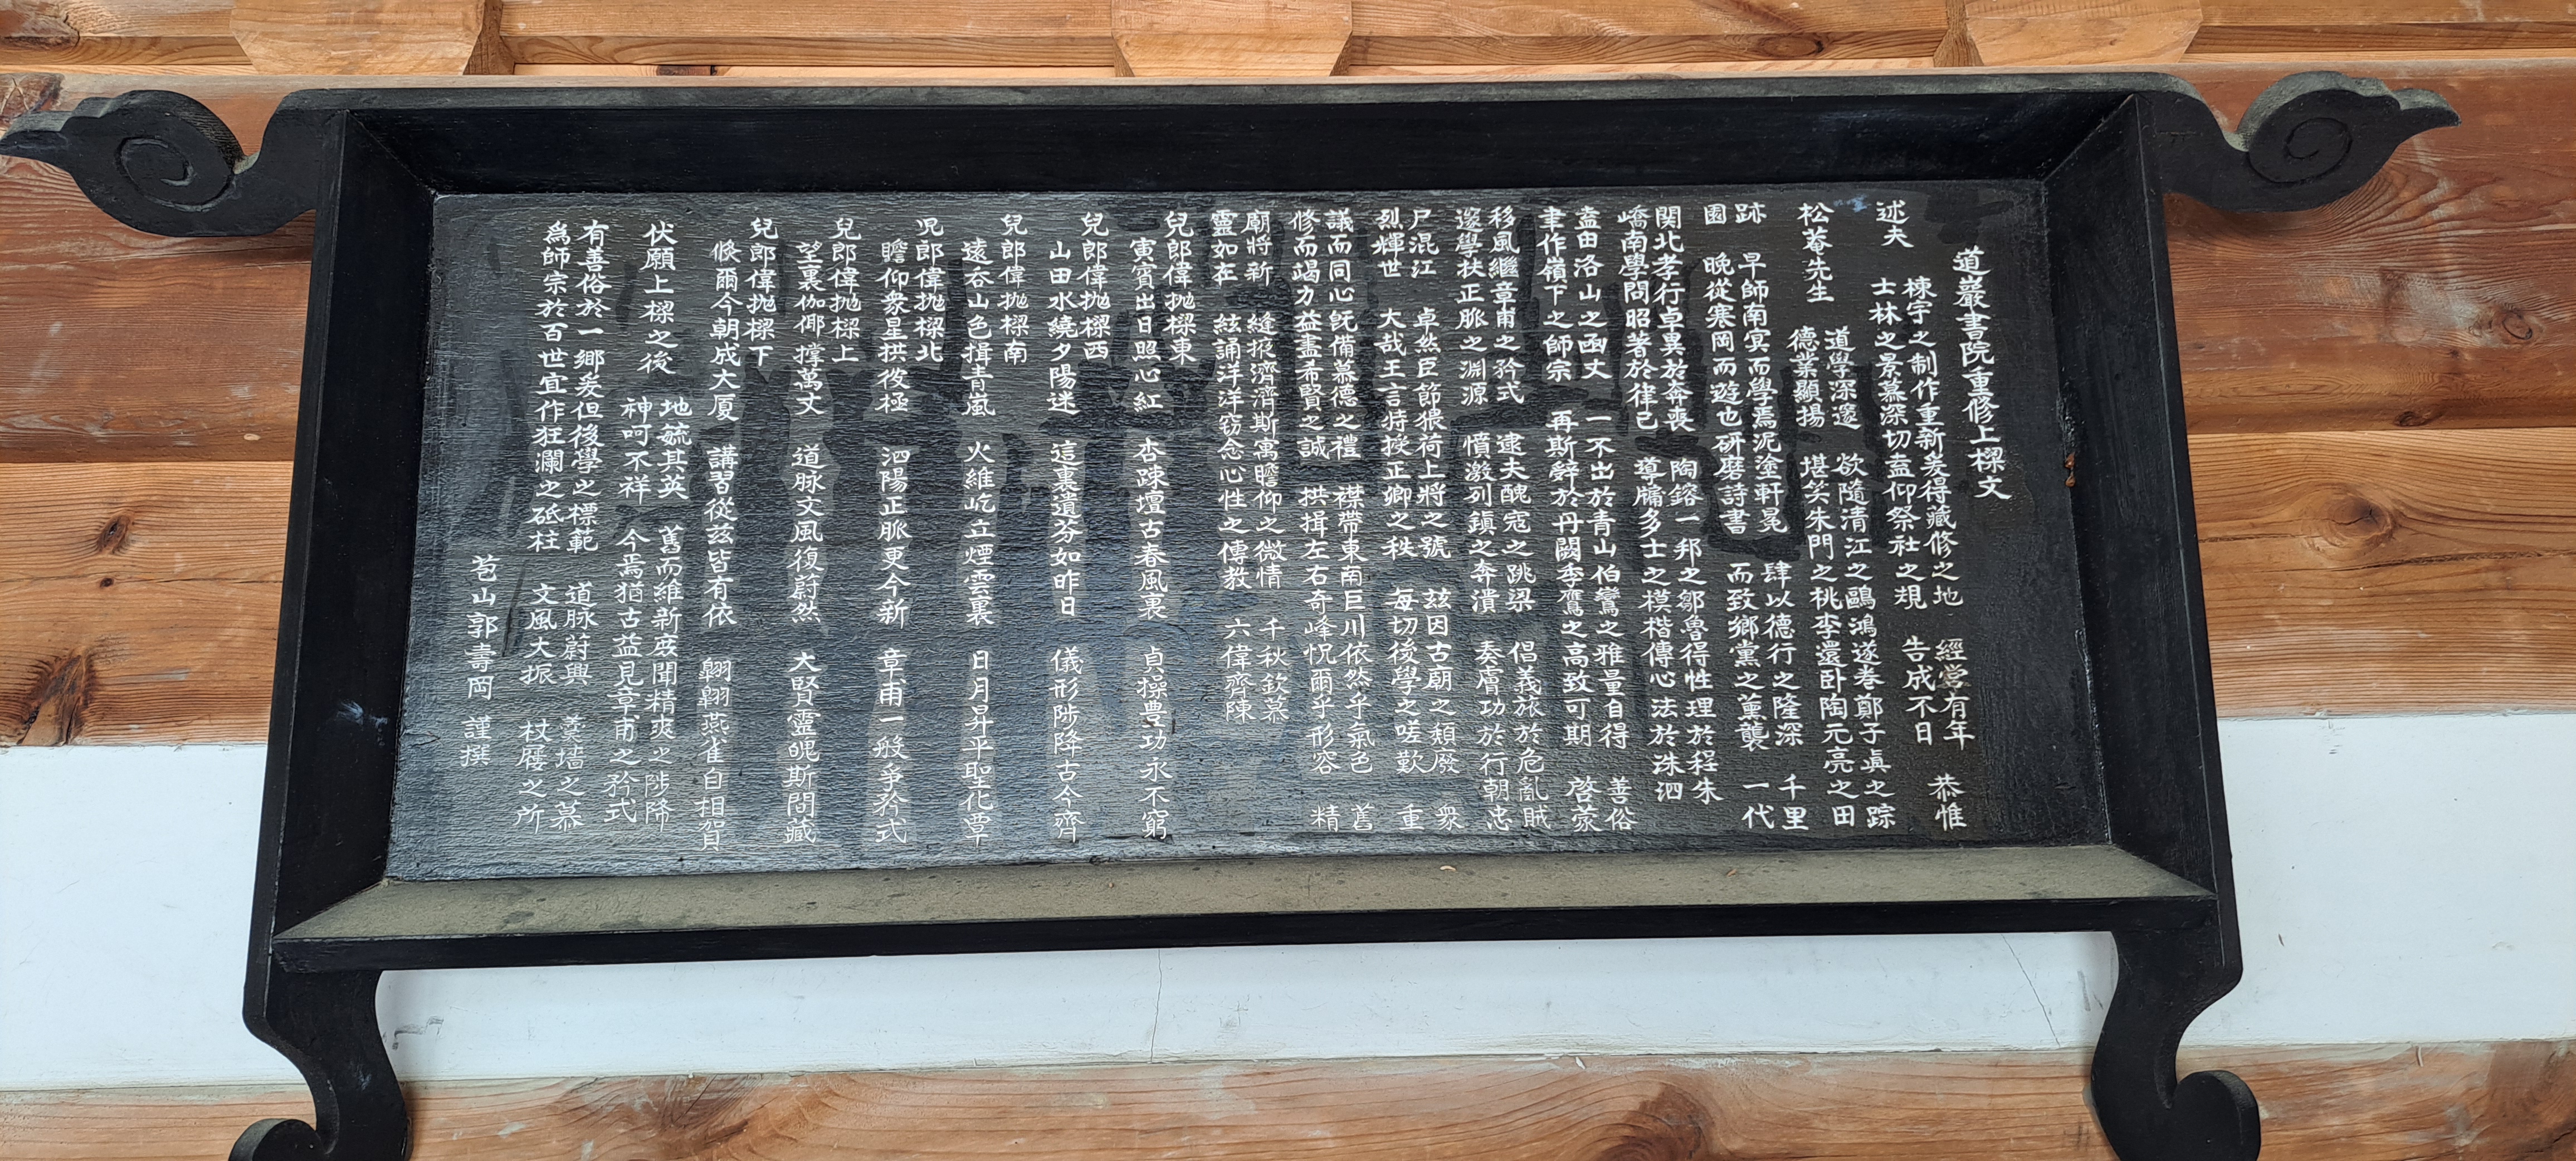 道巖書院重修上樑文
棟宇之制作重新爰得藏修之地 經營有年 恭惟
述夫 士林之景慕深切盍仰祭社之規 告成不日
道學深邃 欲隨清江之鷗鴻遂巻鄭子眞之踪
松菴先生 德業顯揚 堪笑朱門之桃李還卧陶元亮之田
跡 早師南冥而學焉泥塗軒冕 肆以德行之隆深 千里
園 晩從寒岡而遊也研磨詩書 而致鄉黨之薰襲 一代
関北孝行卓異於奔喪 陶鎔一邦之鄒魯得性理於程朱
嶠南學問昭著於律己 導牖多士之模楷傳心法於洙泗
盍由洛山之函丈 一不出於青山伯鸞之雅量自得 善俗
聿作嶺下之師宗 再斯辭於丹闕季鷹之高致可期 啓蒙
移風繼章甫之矜式 逮夫醜寇之跳梁 倡義旅於危亂賊
邃學扶正脈之淵源 憤激列鎭之奔潰 奏膚功於行朝忠
尸混江 卓然巨節猥荷上將之號 玆因古廟之頹廢 衆
烈輝世 大哉王言特揆正卿之秩 每切後學之嗟歎 重
議而同心旣備慕德之禮 襟帶東南巨川依然乎氣色 舊
修而竭力益盡希賢之誠 拱揖左右奇峰怳爾乎形容 精
廟將新 縫掖濟濟斯寓瞻仰之微情 千秋欽慕
靈如在 絃誦洋洋窃念心性之傳教 六偉齊陳
兒郎偉抛樑東
寅賓出日照心紅 杏疎壇古春風裏 貞操豊功永不窮
兒郎偉抛樑西
山田水繞夕陽迷 這裏遺芬如昨日 儀形陟降古今齊
兒郎偉抛樑南
遠吞山色揖青嵐 火維屹立煙雲裏 日月昇平聖化覃
児郎偉抛樑北
瞻仰衆星拱役極 泗陽正脈更今新 章甫一般爭矜式
兒郎偉抛樑上
望裏伽倻撑萬丈 道脉文風復蔚然 大賢靈魄斯問藏
兒郎偉抛樑下
倏爾今朝成大厦 講習從茲皆有依 翺翺燕雀自相賀
地毓其英 舊而維新庶聞精爽之陟降
伏願上樑之後 神呵不祥 今焉猶古益見章甫之矜式
有善俗於一鄉爰但後學之標範 道脉蔚興 羹墻之慕
爲師宗於百世宜作狂瀾之砥柱 文風大振 杖屨之所
苞山郭壽岡 謹撰